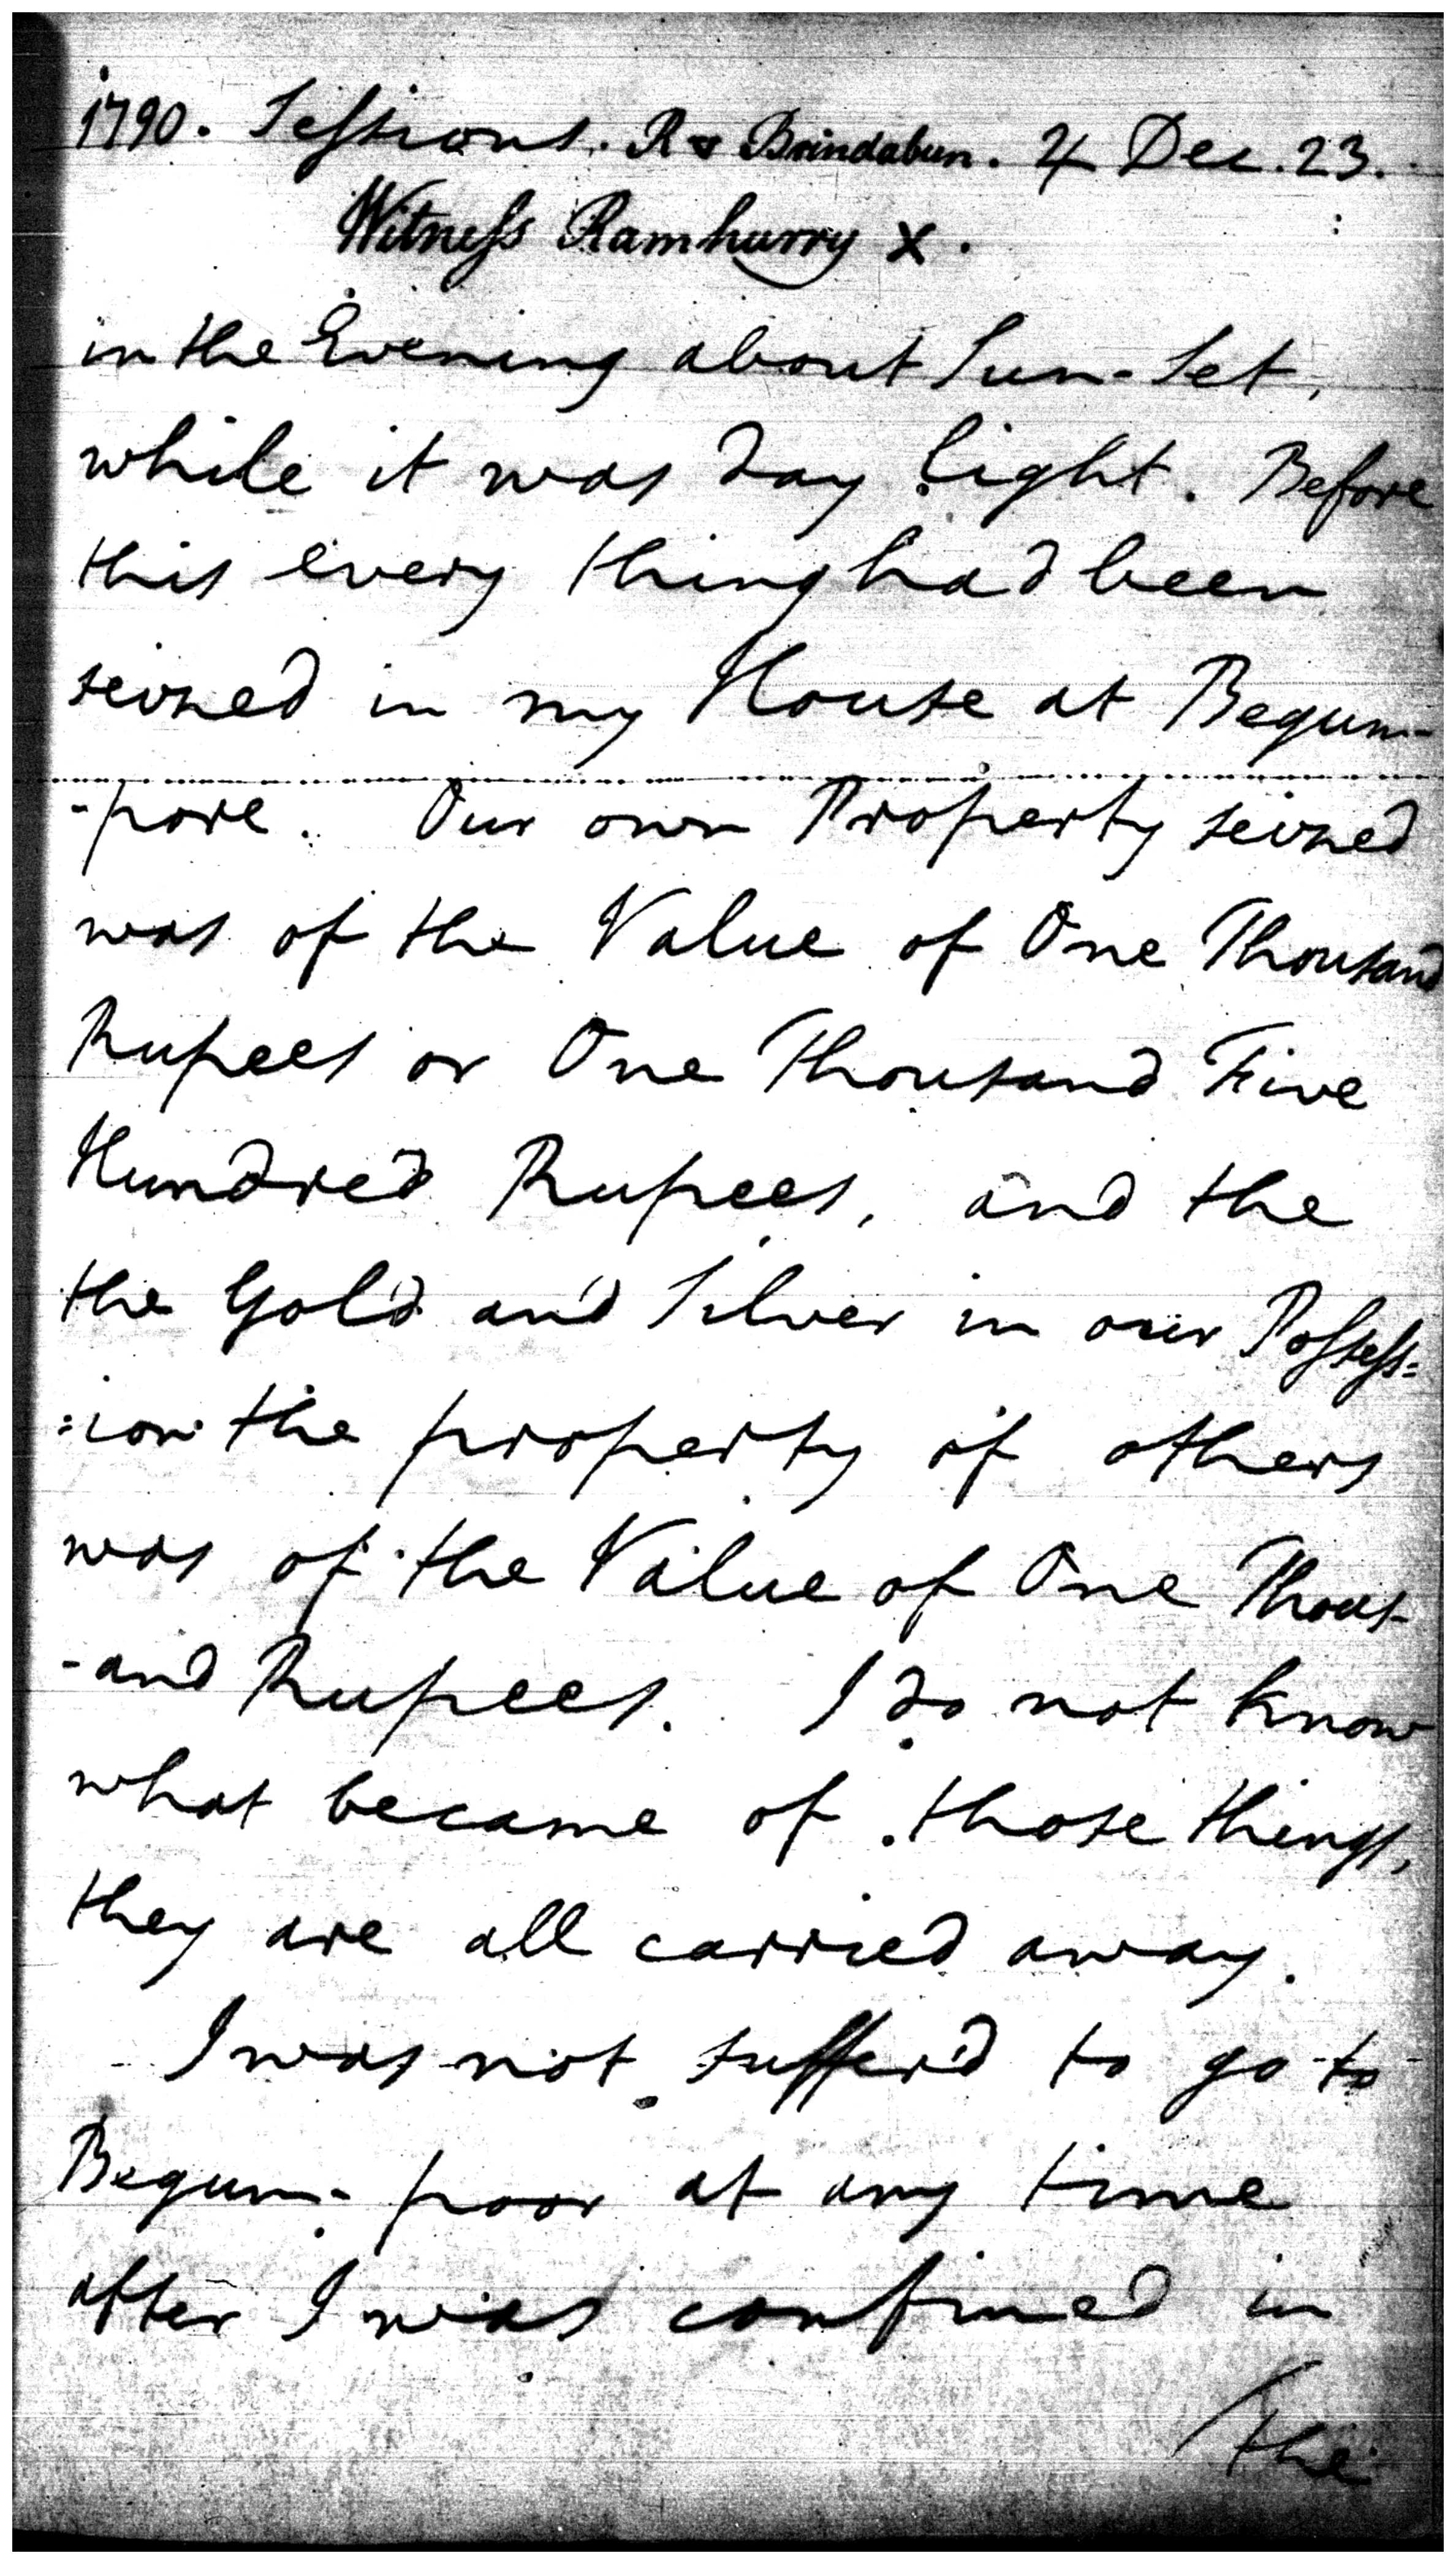 1790. Sessions. R v Brindabun. 4 Dec. 23.
Witness Ramhurry X.
in the Evening about Sun-Set,
while it was day light. Before
this every thing had been
seized in my House at Begum-
-pore. Our own Property seized
was of the Value of One Thousand
Rupees or One Thousand Five
Hundred Rupees, and the
the Gold and Silver in our Possess=
=ion the property of others
was of the Value of One Thous-
-and Rupees. I do not know
what became of those things,
they are all carried away.
I was not suffer'd to go to
Begum-poor at any time
after I was confined in
the